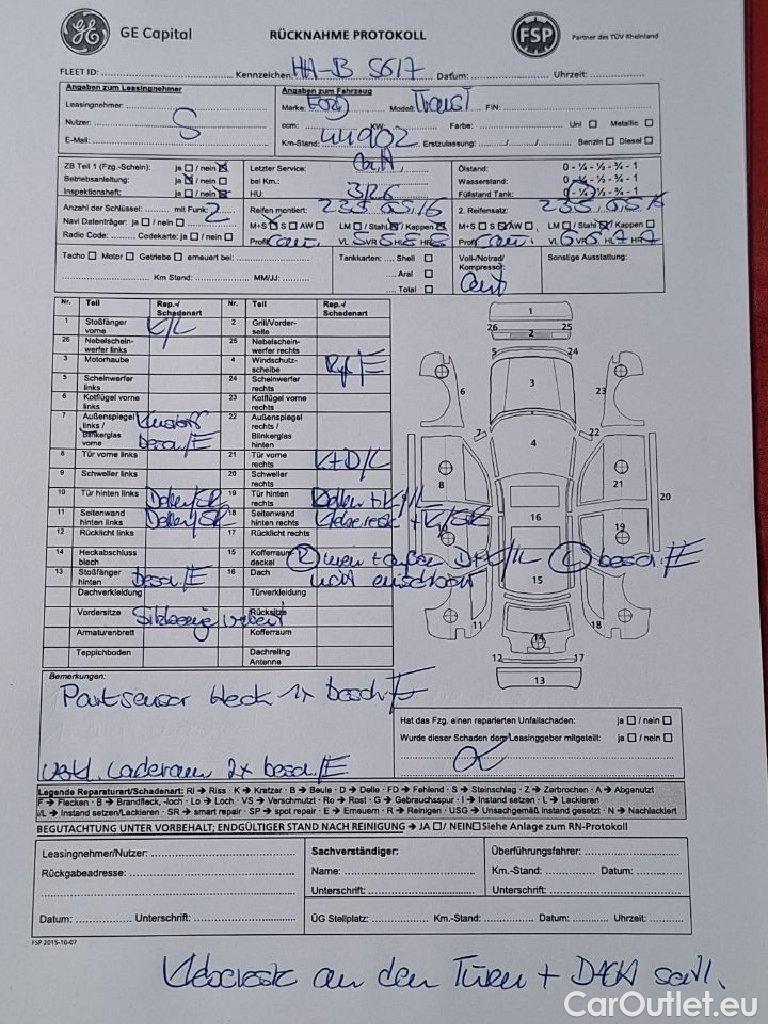 GE Capital
RÜCKNAHME PROTOKOLL
FSP
Partner des TÜV Rheinland
FLEET ID: Kennzeichen: HA-B 5617 Datum: Uhrzeit:
Angaben zum Leasingnehmer
Leasingnehmer:
Nutzer:
E-Mail:
Angaben zum Fahrzeug
Marke: Ford Modell: Transit FIN:
ccm: KW: Farbe: Uni Metallic
Km-Stand: 44902 Erstzulassung: Benzin Diesel
ZB Teil 1 (Fzg.-Schein): ja / nein
Betriebsanleitung: ja / nein
Inspektionsheft: ja / nein
Letzter Service:
bei Km.:
HU: 3/26
Ölstand: 0 - ¼ - ½ - ¾ - 1
Wasserstand: 0 - ¼ - ½ - ¾ - 1
Füllstand Tank: 0 - ¼ - ½ - ¾ - 1
Anzahl der Schlüssel: mit Funk: 2
Navi Datenträger: ja / nein
Radio Code: Codekarte: ja / nein
Reifen montiert: 235 65 16
M+S S AW LM / Stahl / Kappen
Profil VL 5 VR 5 HL 8 HR 8
2. Reifensatz: 235 65 16
M+S S AW LM / Stahl / Kappen
Profil VL 6 VR 6 HL 7 HR 7
Tacho Motor Getriebe erneuert bei:
Km Stand: MM/JJ:
Tankkarten: Shell
Aral
Total
Voll-/Notrad/
Kompressor:
Sonstige Ausstattung:
Nr. Teil Rep.-/ Schadenart Nr. Teil Rep.-/ Schadenart
1 Stoßfänger vorne K/L 2 Grill/Vorderseite
26 Nebelscheinwerfer links 25 Nebelscheinwerfer rechts
3 Motorhaube 4 Windschutzscheibe Riß/E
5 Scheinwerfer links 24 Scheinwerfer rechts
6 Kotflügel vorne links 23 Kotflügel vorne rechts
7 Außenspiegel links / Blinkerglas vorne besch/E 22 Außenspiegel rechts / Blinkerglas hinten
8 Tür vorne links 21 Tür vorne rechts K+D/L
9 Schweller links 20 Schweller rechts
10 Tür hinten links Dellen/SR 19 Tür hinten rechts Dellen+K/L
11 Seitenwand hinten links Dellen/SR 18 Seitenwand hinten rechts
12 Rücklicht links 17 Rücklicht rechts
14 Heckabschlussblech 15 Kofferraumdeckel
13 Stoßfänger hinten besch/E 16 Dach
Dachverkleidung Türverkleidung
Vordersitze Rücksitze
Armaturenbrett Kofferraum
Teppichboden Dachreling Antenne
Bemerkungen:
Parksensor Heck 1x besch/E
Verkl. Laderaum 2x besch/E
Hat das Fzg. einen reparierten Unfallschaden: ja / nein
Wurde dieser Schaden dem Leasinggeber mitgeteilt: ja / nein
Legende Reparaturart/Schadenart: RI → Riss · K → Kratzer · B → Beule · D → Delle · FD → Fehlend · S → Steinschlag · Z → Zerbrochen · A → Abgenutzt
F → Flecken · B → Brandfleck, -loch · Lo → Loch · VS → Verschmutzt · Ro → Rost · G → Gebrauchsspur · I → Instand setzen · L → Lackieren
I/L → Instand setzen/Lackieren · SR → smart repair · SP → spot repair · E → Erneuern · R → Reinigen · USG → Unsachgemäß Instand gesetzt · N → Nachlackiert
BEGUTACHTUNG UNTER VORBEHALT; ENDGÜLTIGER STAND NACH REINIGUNG → JA / NEIN Siehe Anlage zum RN-Protokoll
Leasingnehmer/Nutzer:
Rückgabeadresse:
Datum: Unterschrift:
Sachverständiger:
Name:
Unterschrift:
Überführungsfahrer:
Km.-Stand: Datum:
Unterschrift:
ÜG Stellplatz: Km.-Stand: Datum: Uhrzeit:
FSP 2015-10-07
Klebereste an den Türen + DACH seitl.
CarOutlet.eu